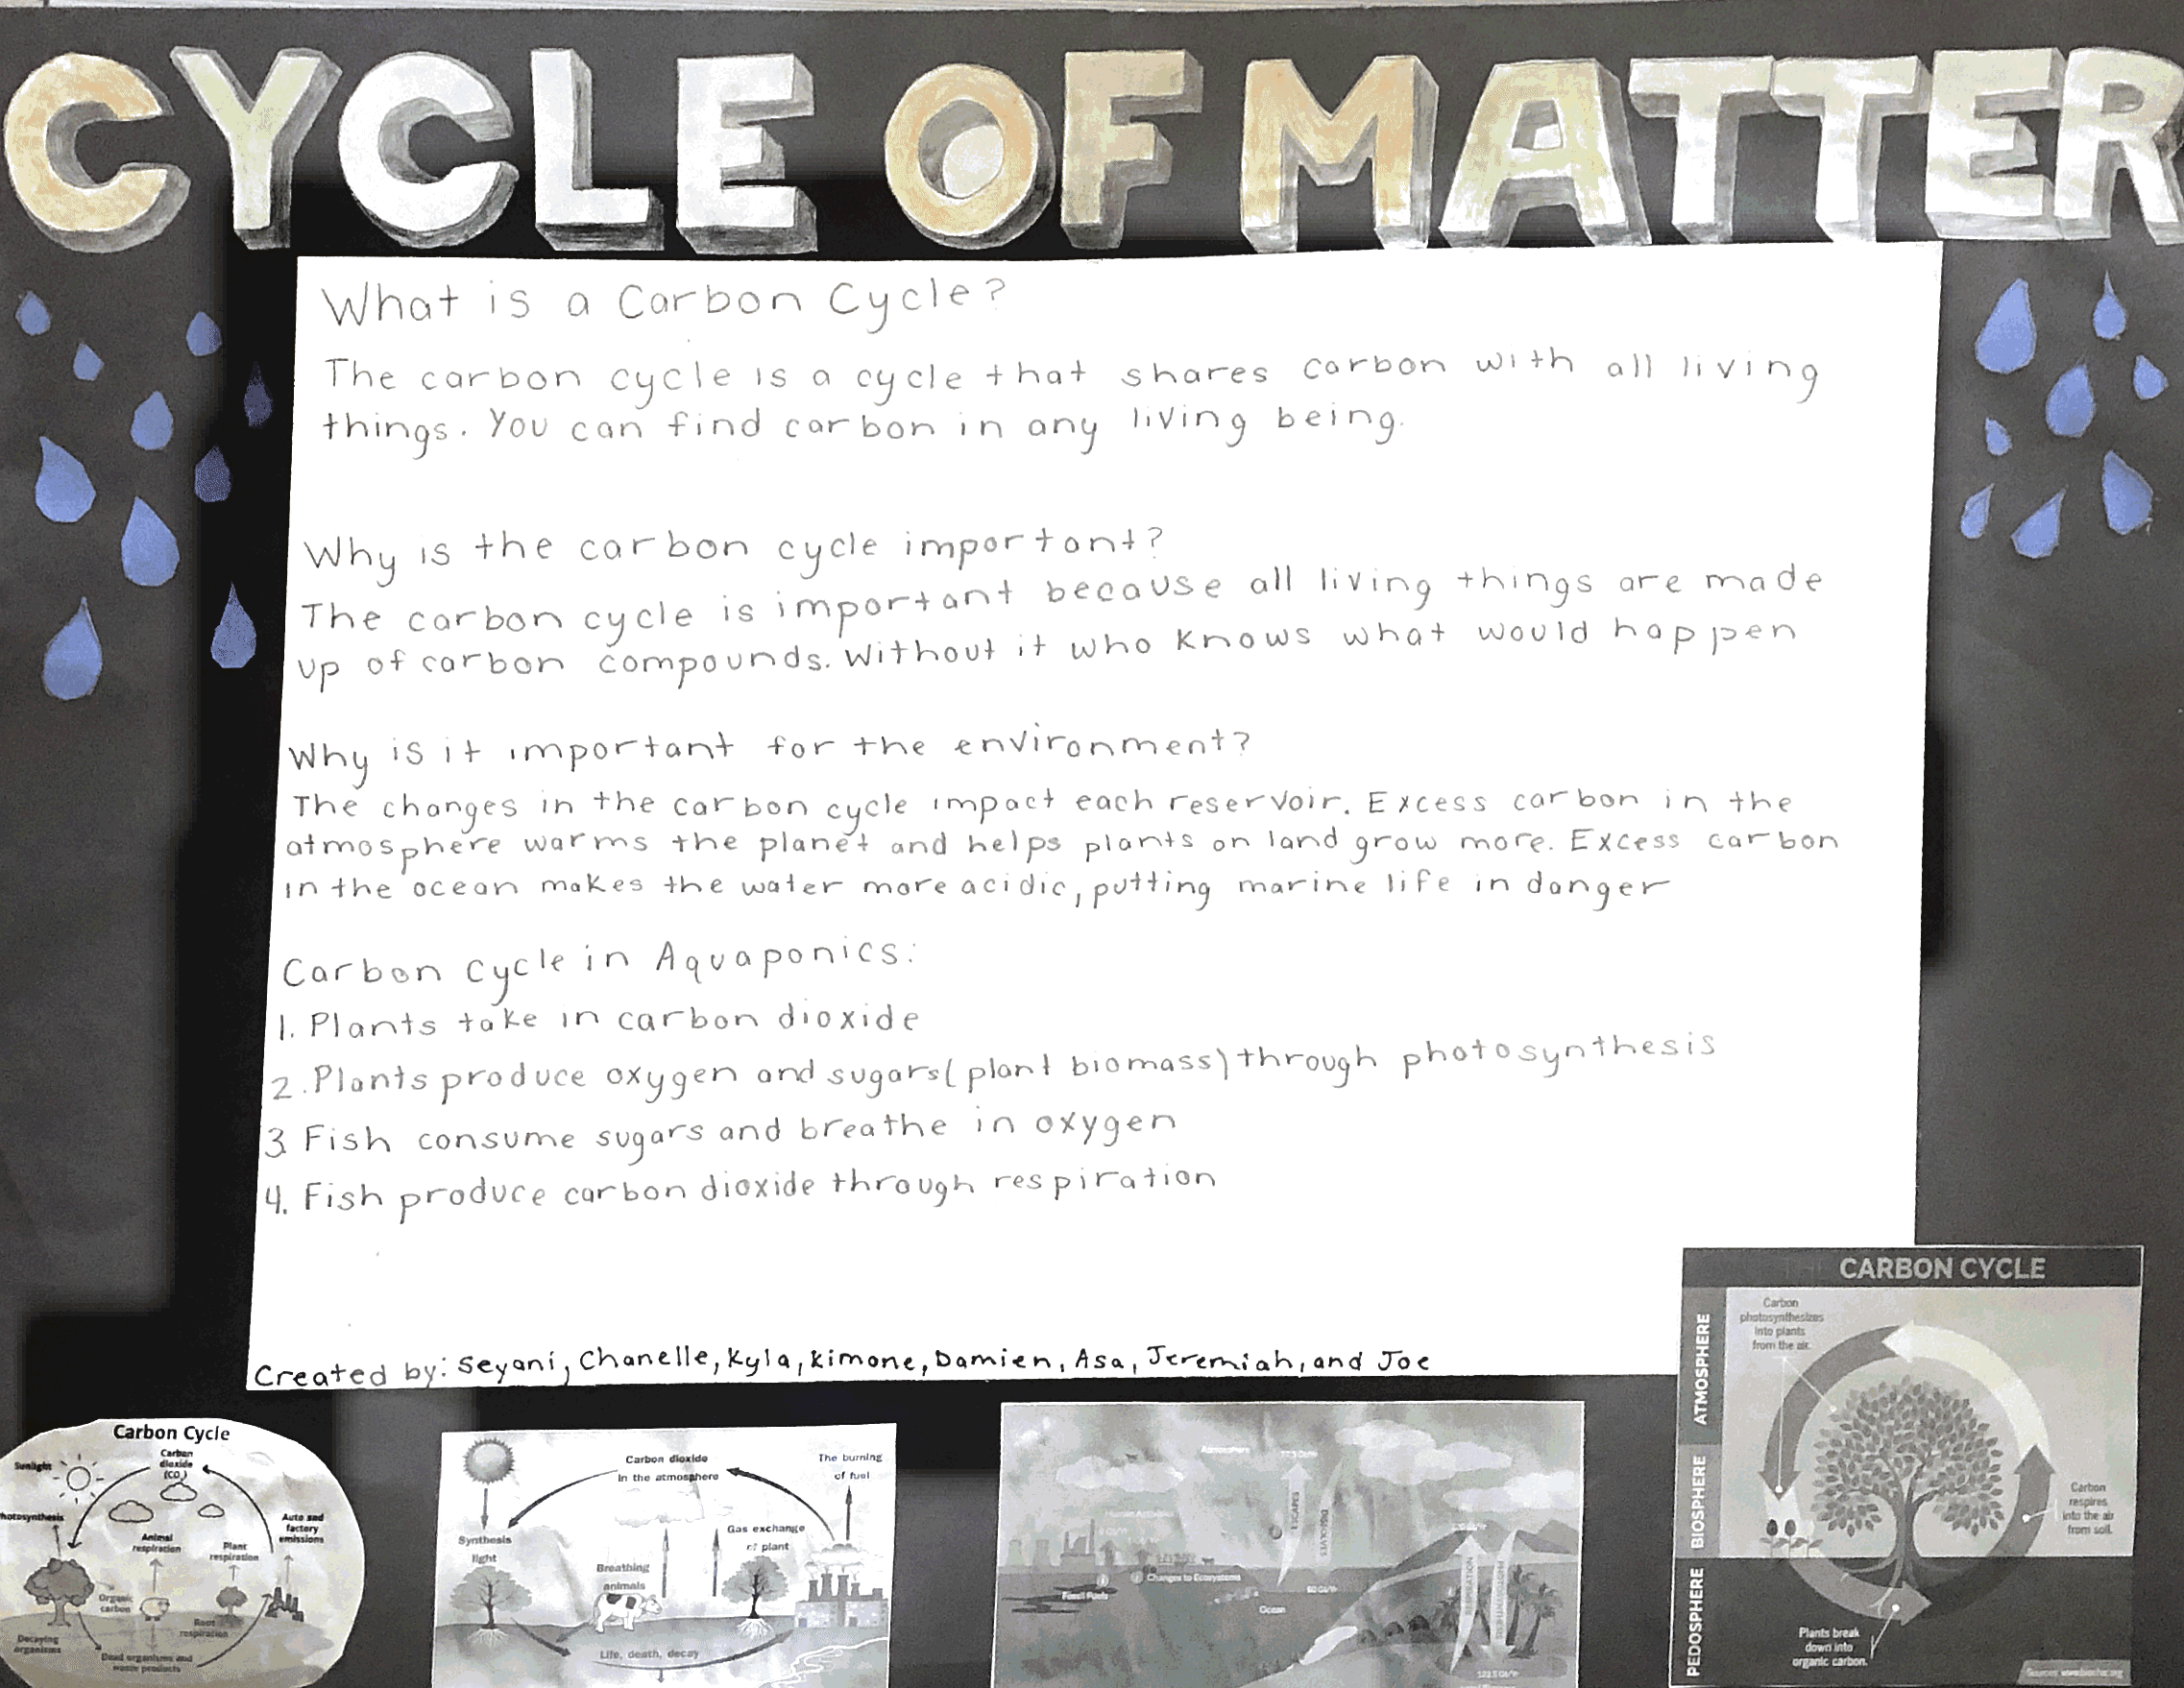 CYCLE OF MATTER
What is a Carbon Cycle?
The carbon cycle is a cycle that shares carbon with all living
things. You can find carbon in any living being.
Why is the carbon cycle important?
The carbon cycle is important because all living things are made
up of carbon compounds. Without it who knows what would happen
Why is it important for the environment?
The changes in the carbon cycle impact each reservoir. Excess carbon in the
atmosphere warms the planet and helps plants on land grow more. Excess carbon
in the ocean makes the water more acidic, putting marine life in danger
Carbon cycle in Aquaponics:
1. Plants take in carbon dioxide
2. Plants produce oxygen and sugars (plant biomass) through photosynthesis
3. Fish consume sugars and breathe in oxygen
4. Fish produce carbon dioxide through respiration
Created by: Seyani, Chanelle, Kyla, Kimone, Damien, Asa, Jeremiah, and Joe
Carbon Cycle
Sunlight
Carbon
dioxide
(CO₂)
hotosynthesis
Animal
respiration
Plant
respiration
Auto and
factory
emissions
Organic
carbon
Root
respiration
Decaying
organisms
Dead organisms and
waste products
Carbon dioxide
in the atmosphere
The burning
of fuel
Synthesis
light
Gas exchange
of plant
Breathing
animals
Life, death, decay
Atmosphere
ESCAPES
DISSOLVES
Changes to Ecosystems
Fossil Fuels
Ocean
RESPIRATION
PHOTOSYNTHESIS
CARBON CYCLE
ATMOSPHERE
BIOSPHERE
PEDOSPHERE
Carbon
photosynthesizes
into plants
from the air.
Carbon
respires
into the air
from soil.
Plants break
down into
organic carbon.